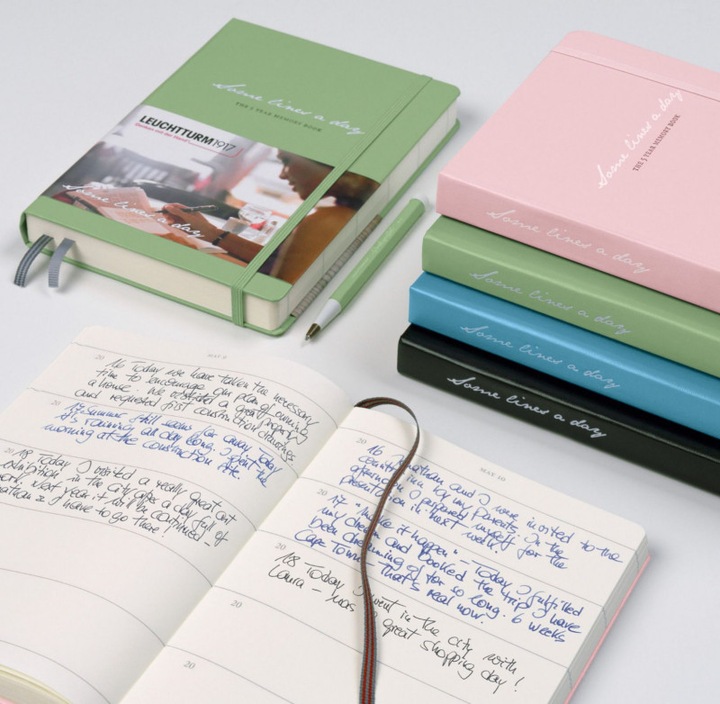 Some lines a day
THE 5 YEAR MEMORY BOOK
LEUCHTTURM1917
Some lines a day
Some lines a day
THE 5 YEAR MEMORY BOOK
Some lines a day
Some lines a day
Some lines a day
Some lines a day
MAY 9
20 16 Today we have taken the necessary
time to encourage our plan of owning
a house. We visited a great property
and requested first construction drawings
20 17 Summer still seems far away. Today
it's raining all day long. I spent the
morning at the construction site.
20 18 Today I visited a really great art
exhibition in the city after a day full of
work. Next year it will be continued -
I have to go there!
MAY 10
20 16 Jonathan and I were invited to the
country by my parents. In the
afternoon I prepared myself for the
presentation in next week.
20 17 "Make it happen" - Today I fulfilled
my dream and booked the trip I have
been dreaming of for so long. 6 weeks
Cape Town - that's real now.
20 18 Today I went in the city with
Laura - was a great shopping day!
20
20